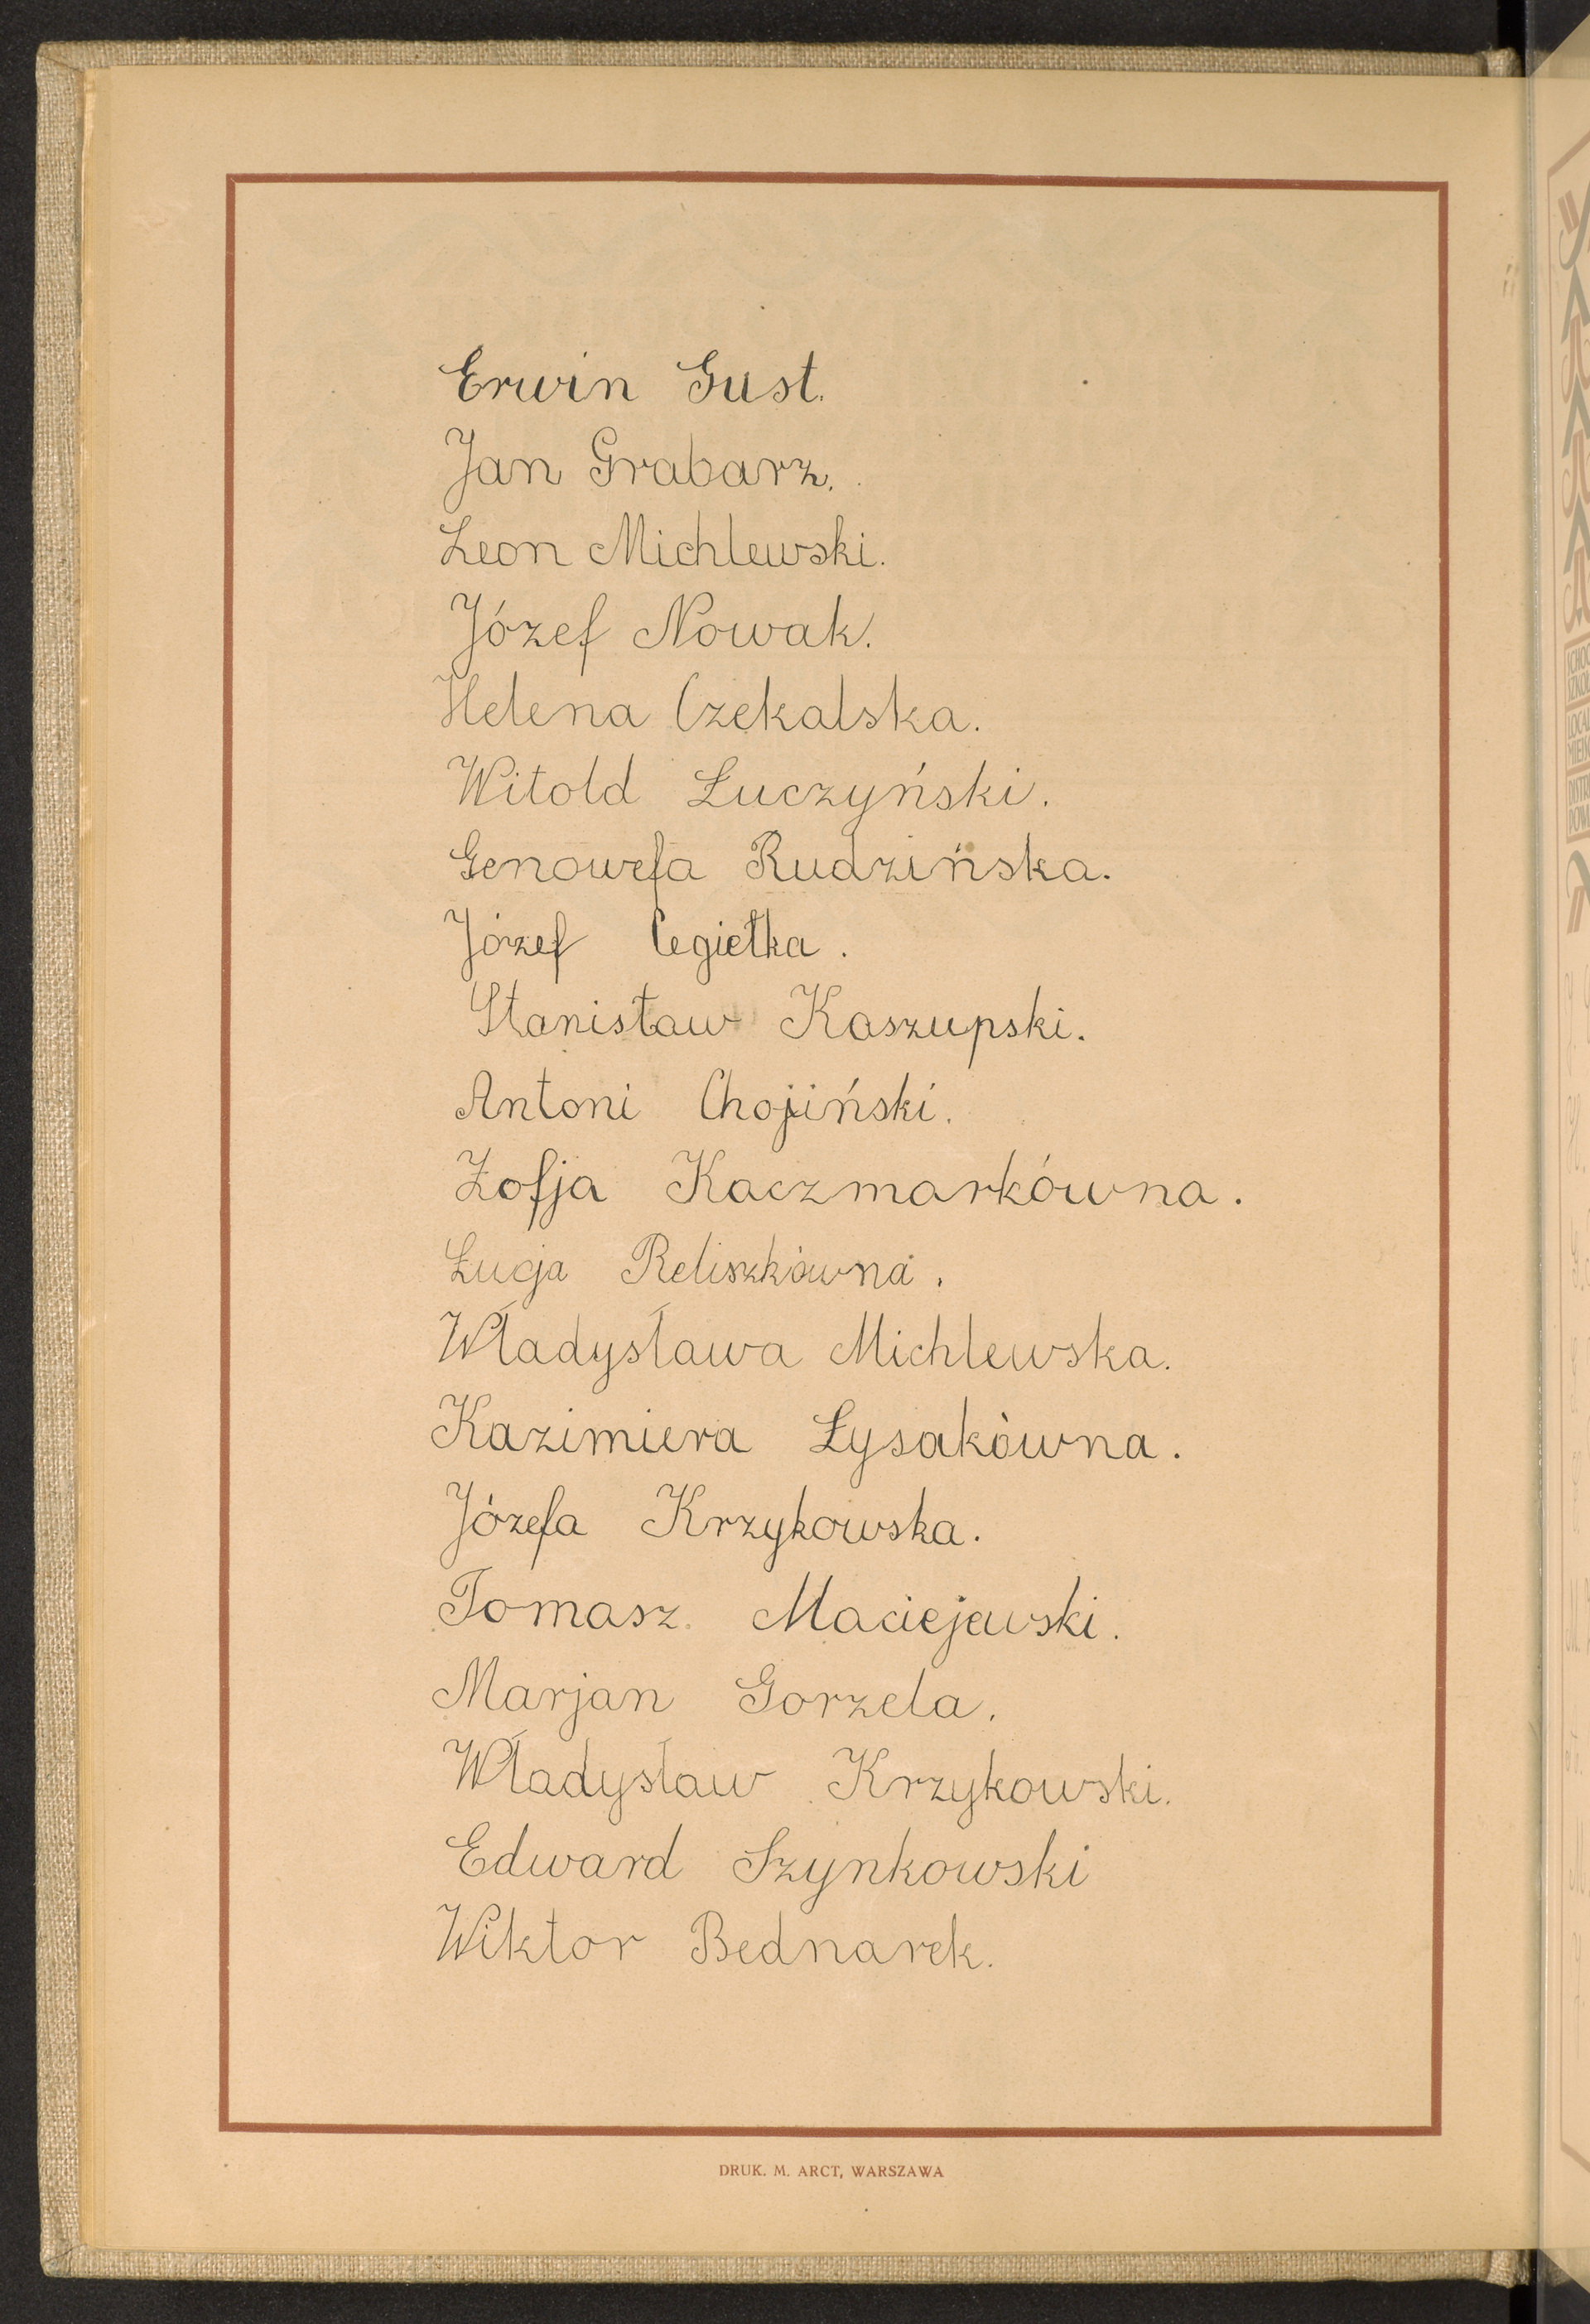 Erwin Gust.
Jan Grabarz.
Leon Michlewski.
Józef Nowak.
Helena Czekalska.
Witold Łuczyński.
Genowefa Rudzińska.
Józef Cegiełka.
Stanisław Kaszupski.
Antoni Chojiński.
Zofja Kaczmarkówna.
Łucja Reliszkówna.
Władysława Michlewska.
Kazimiera Łysakówna.
Józefa Krzykowska.
Tomasz Maciejewski.
Marjan Gorzela.
Władysław Krzykowski.
Edward Szynkowski
Wiktor Bednarek.
DRUK. M. ARCT, WARSZAWA